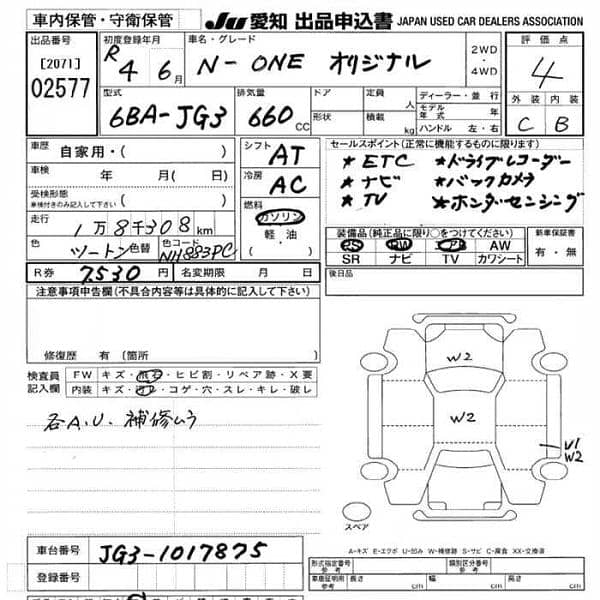 車内保管・守衛保管
JU 愛知 出品申込書 JAPAN USED CAR DEALERS ASSOCIATION
出品番号
[2071]
02577
初度登録年月
R4 6月
車名・グレード
N-ONE オリジナル
2WD
・
4WD
評価点
4
外装 内装
C B
型式
6BA-JG3
排気量
660cc
ドア
形状
定員 人
積載 kg
ディーラー・並行
モデル年式 年
ハンドル 左・右
車歴 自家用・( )
車検 年 月( )
受検形態
車検付きのみ記入して下さい ( )
走行 1万8千308km
色 ツートン 色替 色コード NH883PC
シフト AT
冷房 AC
燃料
ガソリン
軽・油
・
セールスポイント(正常に機能するものに限ります)
★ETC ★ドライブレコーダー
★ナビ ★バックカメラ
★TV ★ホンダセンシング
装備品(純正品に限り○をつけてください)
PS PW AB AW
SR ナビ TV カワシート
新車保証書
有・無
R券 7530円 名変期限 月 日
後日品
注意事項申告欄(不具合内容等は具体的に記入して下さい)
修復歴 有 (箇所
検査員記入欄
FW キズ・飛石・ヒビ割・リペア跡・X要
内装 キズ・コゲ・穴・スレ・キレ・破し
各A.U.補修ムラ
W2
W2
U1
W2
スペア
A-キズ E-エクボ U-凹み W-補修跡 S-サビ C-腐食 XX-交換済
車台番号 JG3-1017875
登録番号
型式指定番号 参考
類別区分番号 参考
車庫証明用 参考 長さ cm 幅 cm 高さ cm